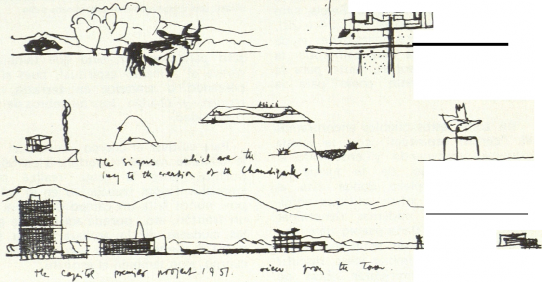 The signs which are the
key to the creation of the Chandigarh.
the capitol premier project 1951. view from the Town.